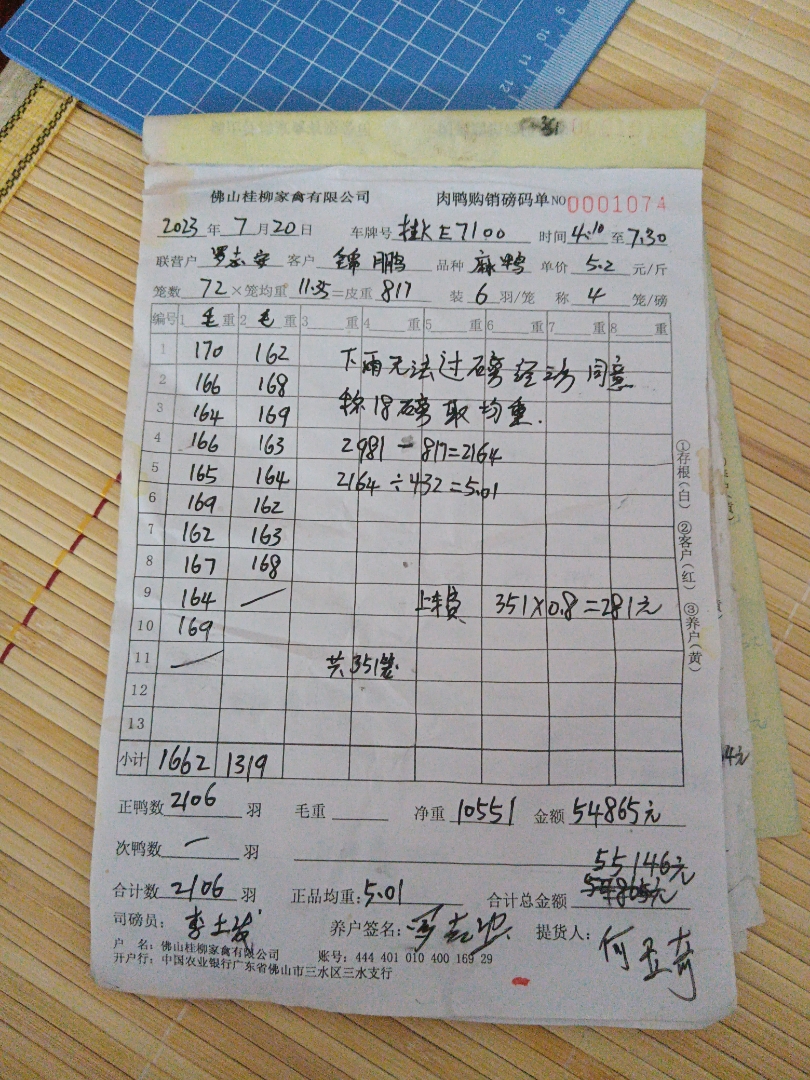 佛山桂柳家禽有限公司 肉鸭购销磅码单 NO 0001074
2023 年 7 月 20 日 车牌号 桂KE7100 时间 4:10 至 7:30
联营户 罗志安 客户 锦鹏 品种 麻鸭 单价 5.2 元/斤
笼数 72 ×笼均重 11.35 =皮重 817 装 6 羽/笼 称 4 笼/磅
编号 1 毛 重 2 毛 重 3 重 4 重 5 重 6 重 7 重 8 重
1 170 162
下雨无法过磅经 同意
2 166 168
3 164 169 称18磅取均重.
4 166 163 2981-817=2164
5 165 164 2164÷432=5.01
6 169 162
7 162 163
8 167 168
9 164 — 上车费 351×0.8=281元
10 169
11 — 共351笼.
12
13
小计 1662 1319
①存根(白) ②客户(红) ③养户(黄)
正鸭数 2106 羽 毛重 净重 10551 金额 54865元
次鸭数 — 羽 55146元
合计数 2106 羽 正品均重: 5.01 合计总金额 54865元
司磅员: 养户签名: 提货人:
户 名: 佛山桂柳家禽有限公司 账号: 444 401 010 400 169 29
开户行: 中国农业银行广东省佛山市三水区三水支行
9
10
11
12